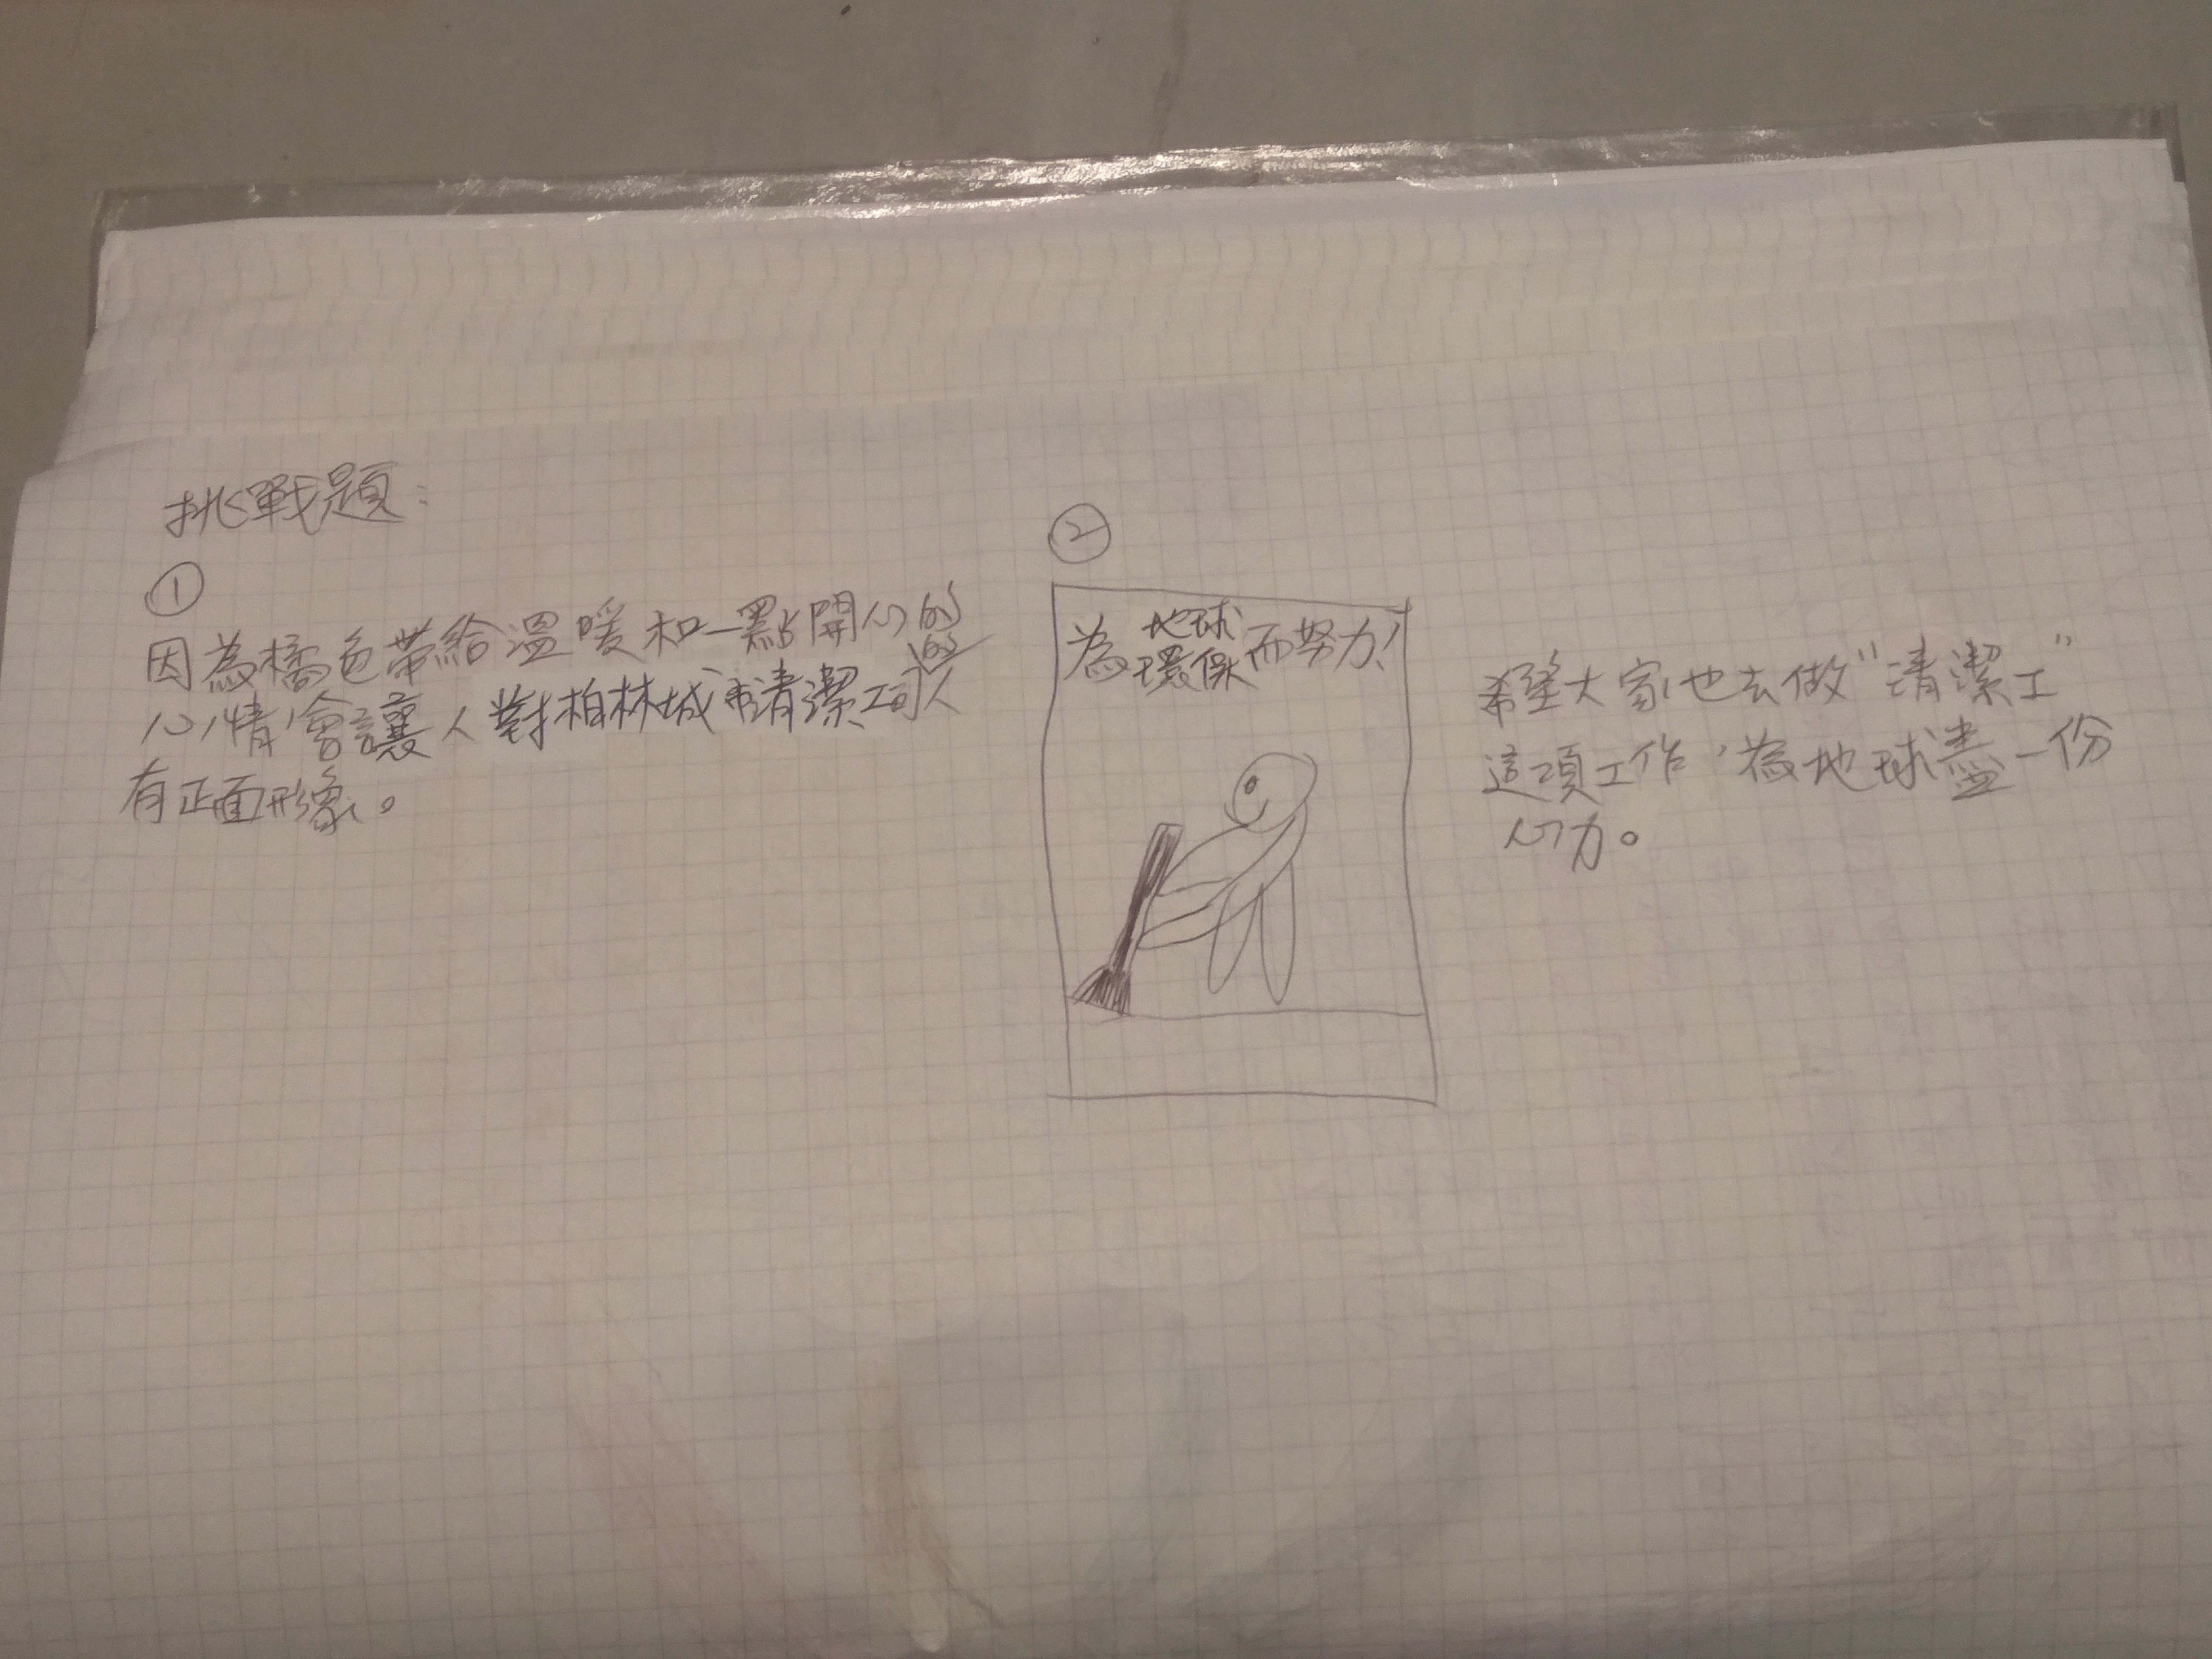 挑戰題：
①
因為橘色帶給溫暖和一點開心的
心情，會讓人對柏林城市清潔工
有正面形象。
②
為地球環保而努力！
希望大家也去做"清潔工"
這項工作，為地球盡一份
心力。